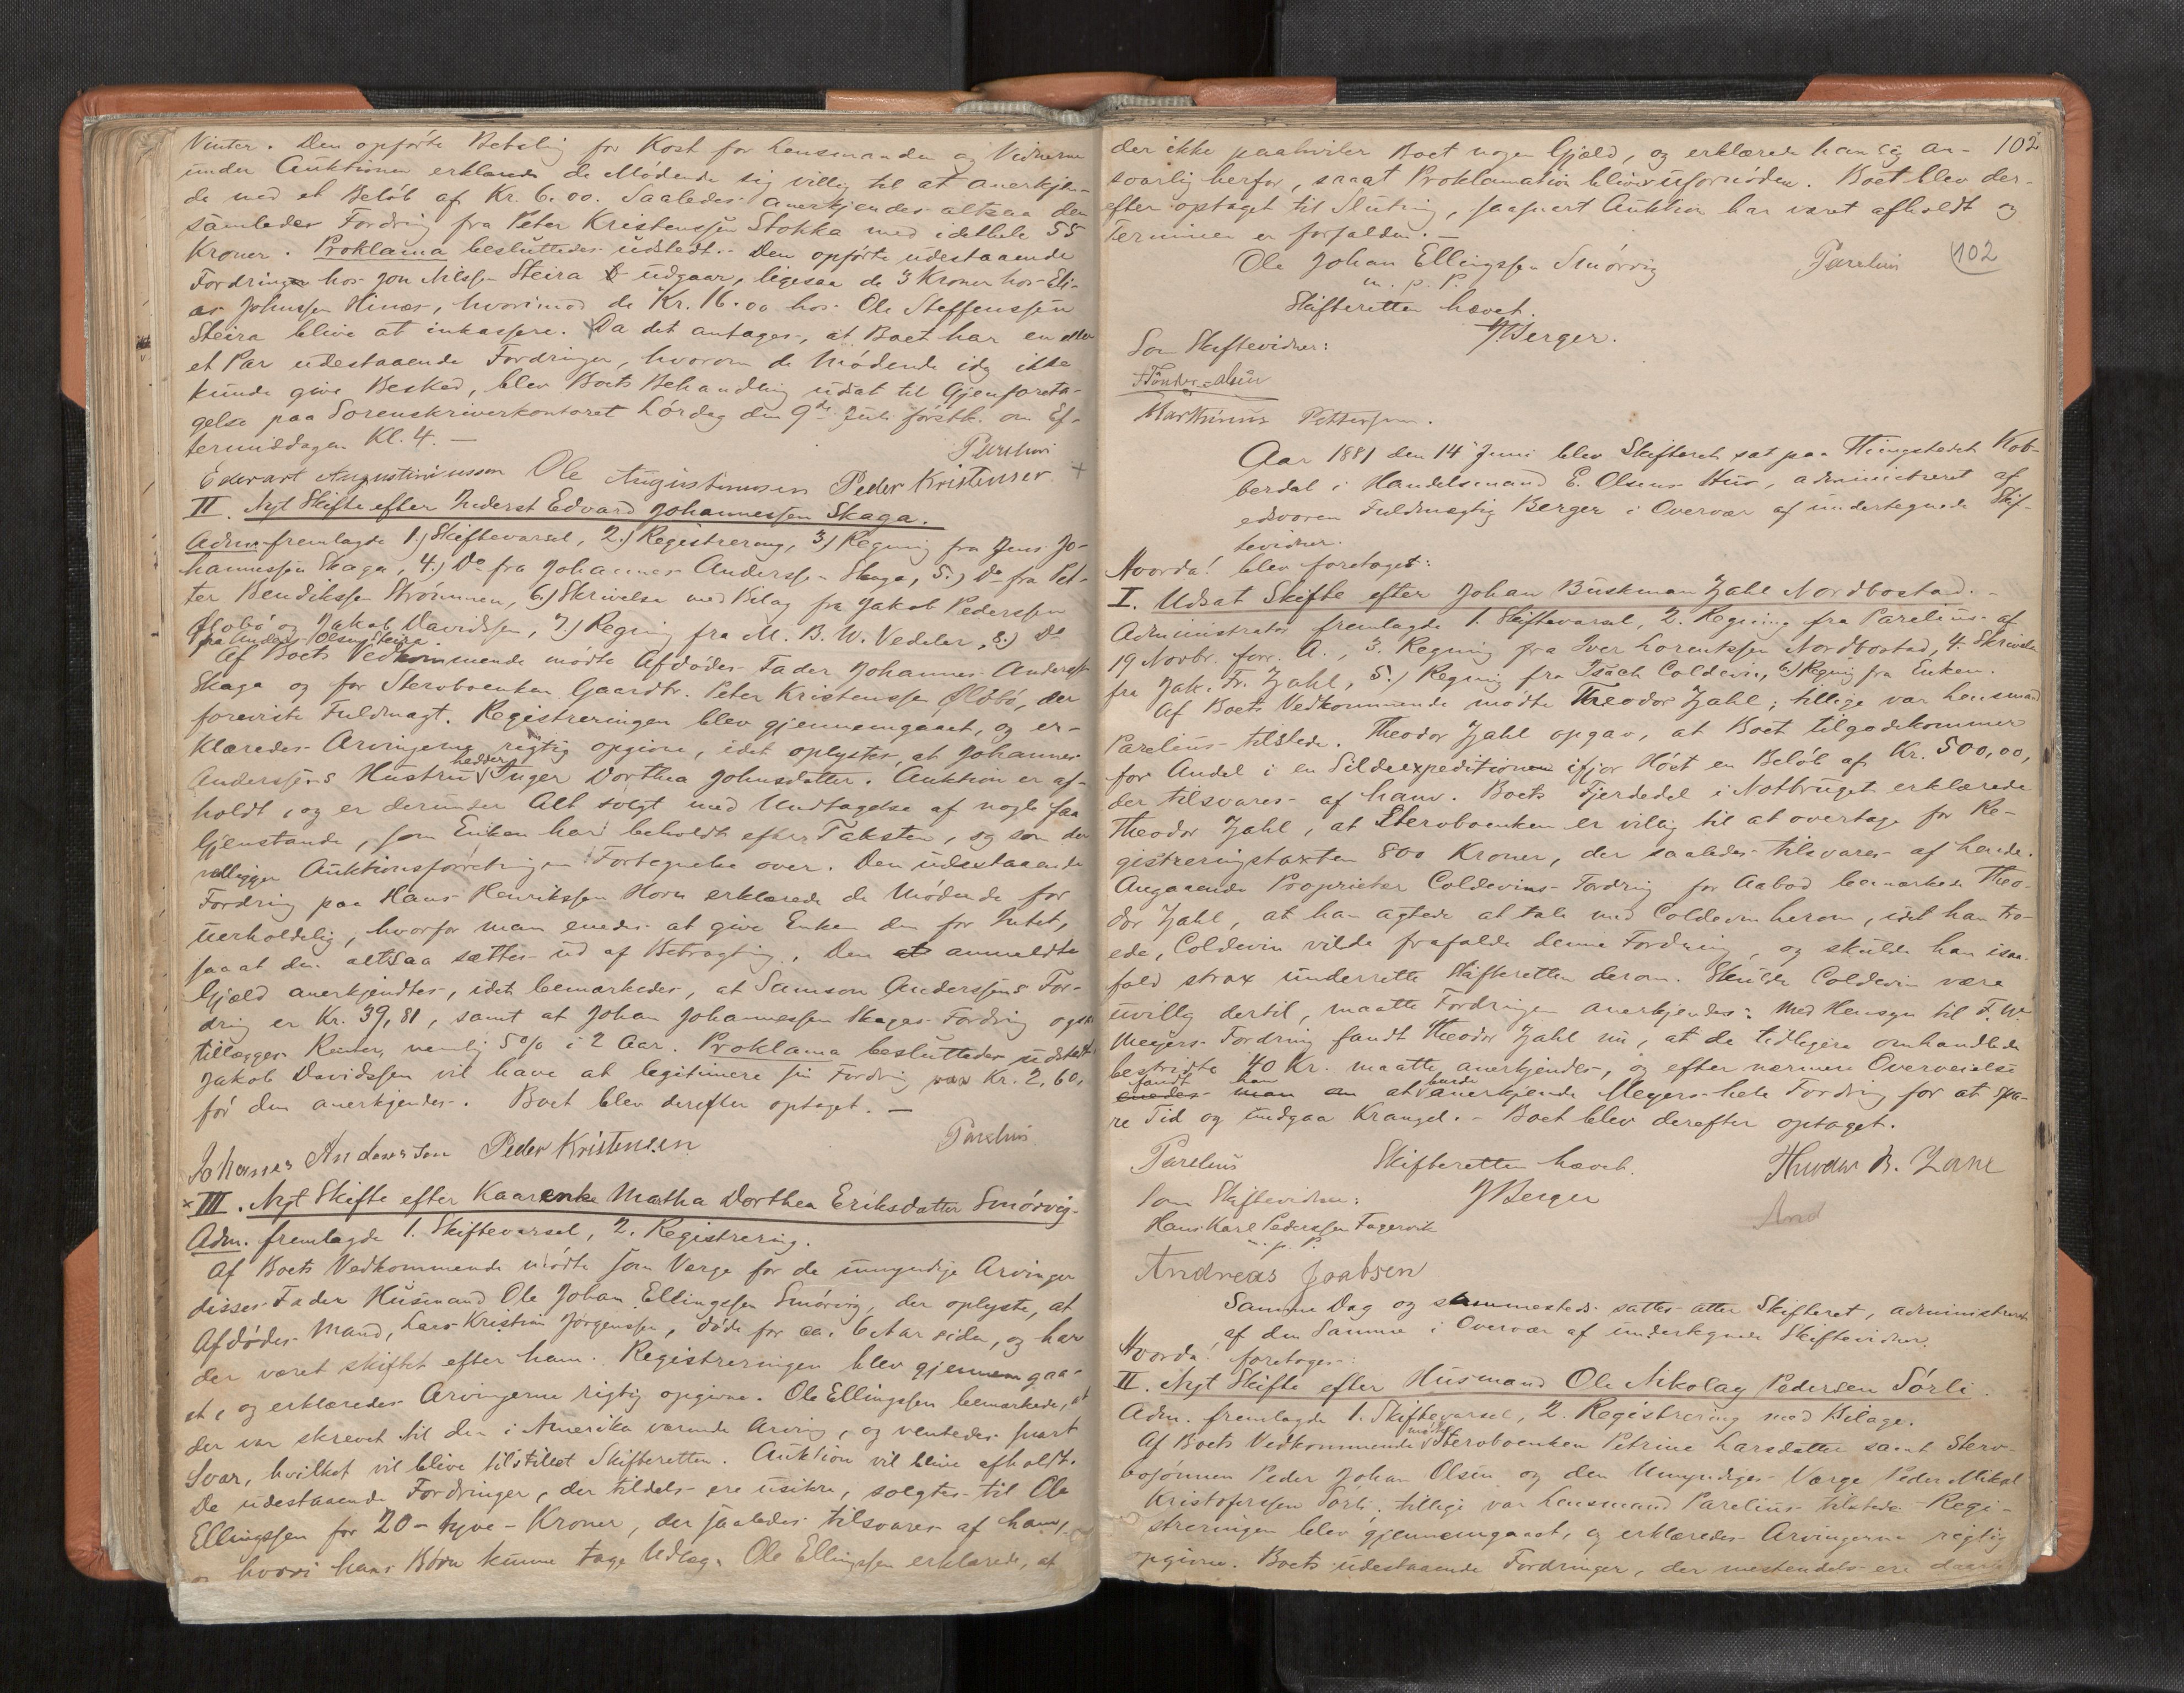 Vinter. Den opførte Betaling for Kost for Lensmanden og Vidnerne
under Auktionen erklærede de Mødende sig villig til at anerkjen-
de med et Beløb af Kr. 6.00. Saaledes anerkjendes altsaa den
samlede Fordring fra Peter Kristenssen Stokka med idethele 55
Kroner. Proklama besluttedes udstedt. - Den opførte udestaaende
Fordring hos Jon Nilss. Steira udgaar, ligesaa de 3 Kroner hos Eli-
as Johnssen Hinæs, hvorimod de Kr. 16.00 hos Ole Steffenssen
Steira blive at inkassere. Da det antages, at Boet har en eller
et Par udestaaende Fordringer, hvorom de Mødende idag ikke
kunde give Besked, blev Boets Behandling udsat til Gjenforeta-
gelse paa Sorenskriverkontoret Lørdag den 9de Juli førstk. om Ef-
termiddagen Kl. 4. -
Parelius
Edevart Augustinusson Ole Augustinusen Peder Kristenser +
II. Nyt Skifte efter Inderst Edvard Johannessen Skaga.
Adm. fremlagde 1.) Skiftevarsel, 2.) Registrering, 3.) Regning fra Jens Jo-
hannessen Skaga, 4.) Do fra Johannes Anderssen Skaga, 5.) Do fra Pet-
ter Bendikssen Strømmen, 6.) Skrivelse med Bilag fra Jakob Pederssen
og Jakob Davidssen, 7.) Regning fra M. B. W. Vedeler, 8.) Do
fra Anders Olsen Steira.
Af Boets Vedkommende mødte Afdødes Fader Johannes Anderss.
Skaga og for Stervboenken Gaardbr. Peter Kristenssen Øldbø, der
foreviste Fuldmagt. Registreringen blev gjennemgaaet, og er-
klæredes Arvingerne rigtig opgivne, idet oplystes, at Johannes
Anderssens Hustru hedder Inger Dorthea Johnsdatter. Auktion er af-
holdt, og er derunder Alt solgt med Undtagelse af nogle faa
Gjenstande, som Enken har beholdt efter Taksten, og som der
vedligger Auktionsforretningen Fortegnelse over. Den udestaaende
Fordring paa Hans Henrikssen Horn erklærede de Mødende for
uerholdelig, hvorfor man enedes at give Enken den for Intet,
saaat den altsaa sættes ud af Betragtning. Den anmeldte
Gjæld anerkjendtes, idet bemærkedes, at Samson Anderssens For-
dring er Kr. 39,81, samt at Johan Johannessen Skagas Fordring ogsaa
tillægges Renter, nemlig 5% i 2 Aar. Proklama besluttedes udstedt.
Jakob Davidssen vil have at legitimere sin Fordring Kr. 2,60,
før den anerkjendes. Boet blev derefter optaget. -
Johanes Anderssen Peder Kristensen Parelius
× III. Nyt Skifte efter Kaarenke Martha Dorthea Eriksdatter Smørvig.
Adm. fremlagde 1. Skiftevarsel, 2. Registrering.
Af Boets Vedkommende mødte som Værge for de umyndige Arvinger
disses Fader Husmand Ole Johan Ellingssen Smørvig, der oplyste, at
Afdødes Mand, Lars Kristian Jørgenssen, døde for ca. 6 Aar siden, og har
der været skiftet efter ham. Registreringen blev gjennemgaa-
et, og erklæredes Arvingerne rigtig opgivne. Ole Ellingssen bemærkede, at
der var skrevet til den i Amerika værende Arving, og ventedes snart
Svar, hvilket vil blive tilstillet Skifteretten. Auktion vil blive afholdt.
De udestaaende Fordringer, der tildels ere usikre, solgtes til Ole
Ellingssen for 20 - tyve - Kroner, der saaledes tilsvares af ham,
hvori hans Børn kunne tage Udlæg. Ole Ellingssen erklærede, at
der ikke paahviler Boet nogen Gjæld, og erklærede han sig an-
102
svarlig herfor, saaat Proklamation bliver ufornøden. Boet blev der-
efter optaget til Slutning, saasnart Auktion har været afholdt og
Terminen er forfalden. -
Ole Johan Ellingssen Smørvig Parelius
102
m. p. P.
Skifteretten hævet.
Berger.
Som Skiftevidner:
Markinus Pettersen.
Aar 1881 den 14 Juni blev Skifteret sat paa Thingstedet Kob-
berdal i Handelsmand E. Olsens Hus, administreret af
edsvoren Fuldmægtig Berger i Overvær af undertegnede Skif-
tevidner.
Hvorda! blev foretaget:
I. Udsat Skifte efter Johan Buskman Zahl Nordbostad. -
Administrator fremlagde 1. Skiftevarsel, 2. Regning fra Parelius af
19 Novbr. forr. A., 3. Regning fra Iver Lorentssen Nordbostad, 4. Skrivelse
fra Jak. Fr. Zahl, 5.) Regning fra Isach Coldevin, 6.) Regnig fra Enken.
Af Boets Vedkommende mødte Theodor Zahl; tillige var Lensmand
Parelius tilstede. Theodor Zahl opgav, at Boet tilgodekommer
for Andel i en Sildeexpedition ifjor Høst en Beløb af Kr. 500,00,
der tilsvares af ham. Boets Fjerdedel i Notbruget erklærede
Theodor Zahl, at Stervboenken er villig til at overtage for Re-
gistreringstaxten 800 Kroner, der saaledes tilsvares af hende.
Angaaende Proprietær Coldevins Fordring for Aabod bemærkede Theo-
dor Zahl, at han agtede at tale med Coldevin herom, idet han tro-
ede, Coldevin vilde frafalde denne Fordring, og skulde han isaa-
fald strax underrette Skifteretten derom. Skulde Coldevin være
uvillig dertil, maatte Fordringen anerkjendes. Med Hensyn til F. W.
Meyers Fordring fandt Theodor Zahl nu, at de tidligere omhandlede
bestridte 40 Kr. maatte anerkjendes, og efter nærmere Overveielse
fandt han at burde anerkjende Meyers hele Fordring for at spa-
re Tid og undgaa Krangel. - Boet blev derefter optaget.
Parelius Skifteretten hævet. Theodor B. Zahl
Som Skiftevidner: Berger
Hans Karl Pederssen Fagervik And
m. p. P.
Andreas Joabsen
Samme Dag og sammesteds sattes atter Skifteret, administreret
af den Samme i Overvær af undertegnede Skiftevidner.
Hvorda! foretoges:
II. Nyt Skifte efter Husmand Ole Nikolay Pedersen Sørli.
Adm. fremlagde 1. Skiftevarsel, 2. Registrering med Bilage.
Af Boets Vedkommende mødte Stervboenken Petrine Larsdatter samt Sterv-
bosønnen Peder Johan Olsen og den Umyndiges Værge Peder Mikal
Kristoferssen Sørli; tillige var Lensmand Parelius tilstede. Regi-
streringen blev gjennemgaaet, og erklæredes Arvingerne rigtig
opgivne. Boets udestaaende Fordringer, der mestendels ere